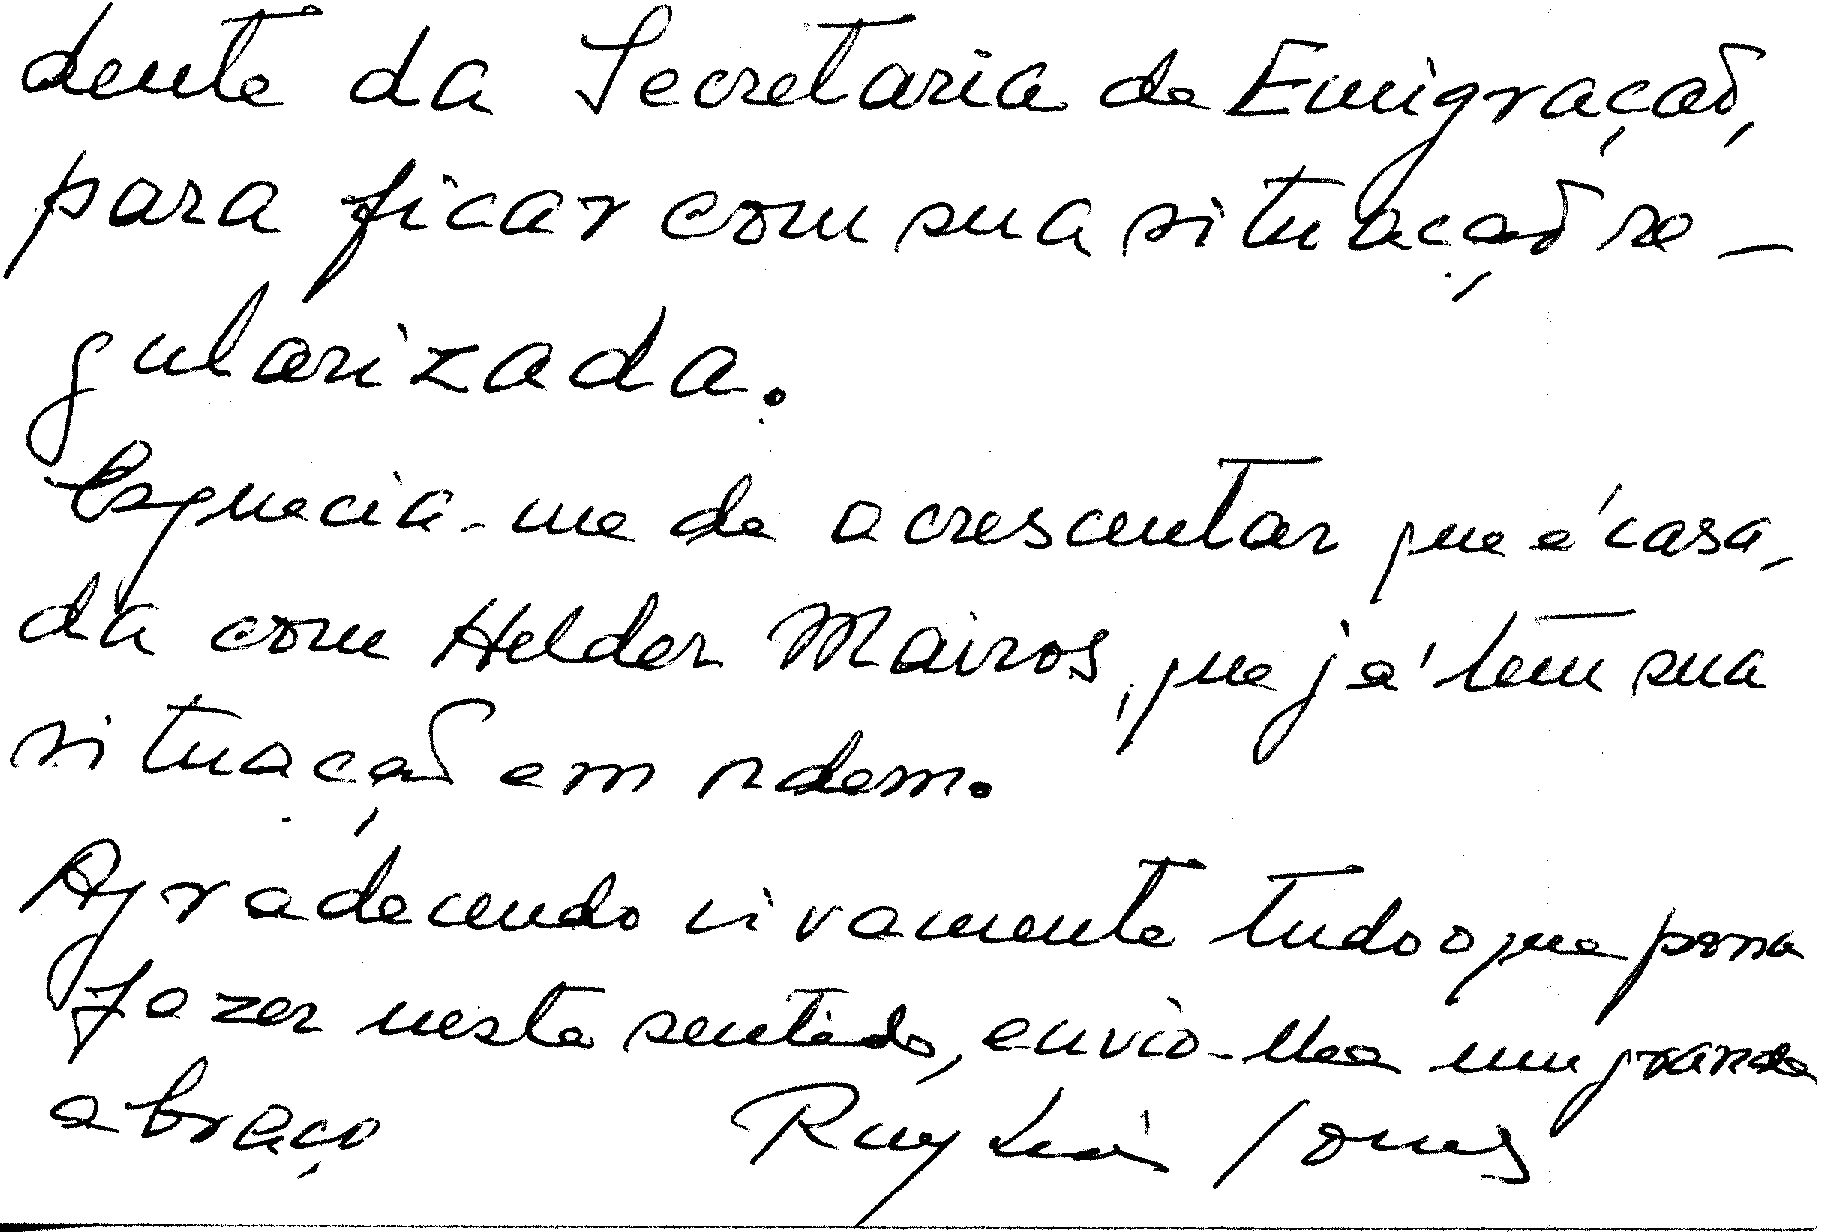 dente da Secretaria de Emigração,
para ficar com sua situação re-
gularizada.
Esquecia-me de acrescentar que é casa-
da com Helder Mairos, que já tem sua
situação em ordem.
Agradecendo vivamente tudo o que possa
fazer neste sentido, envio-lhe um grande
abraço Ruy Luís Gomes